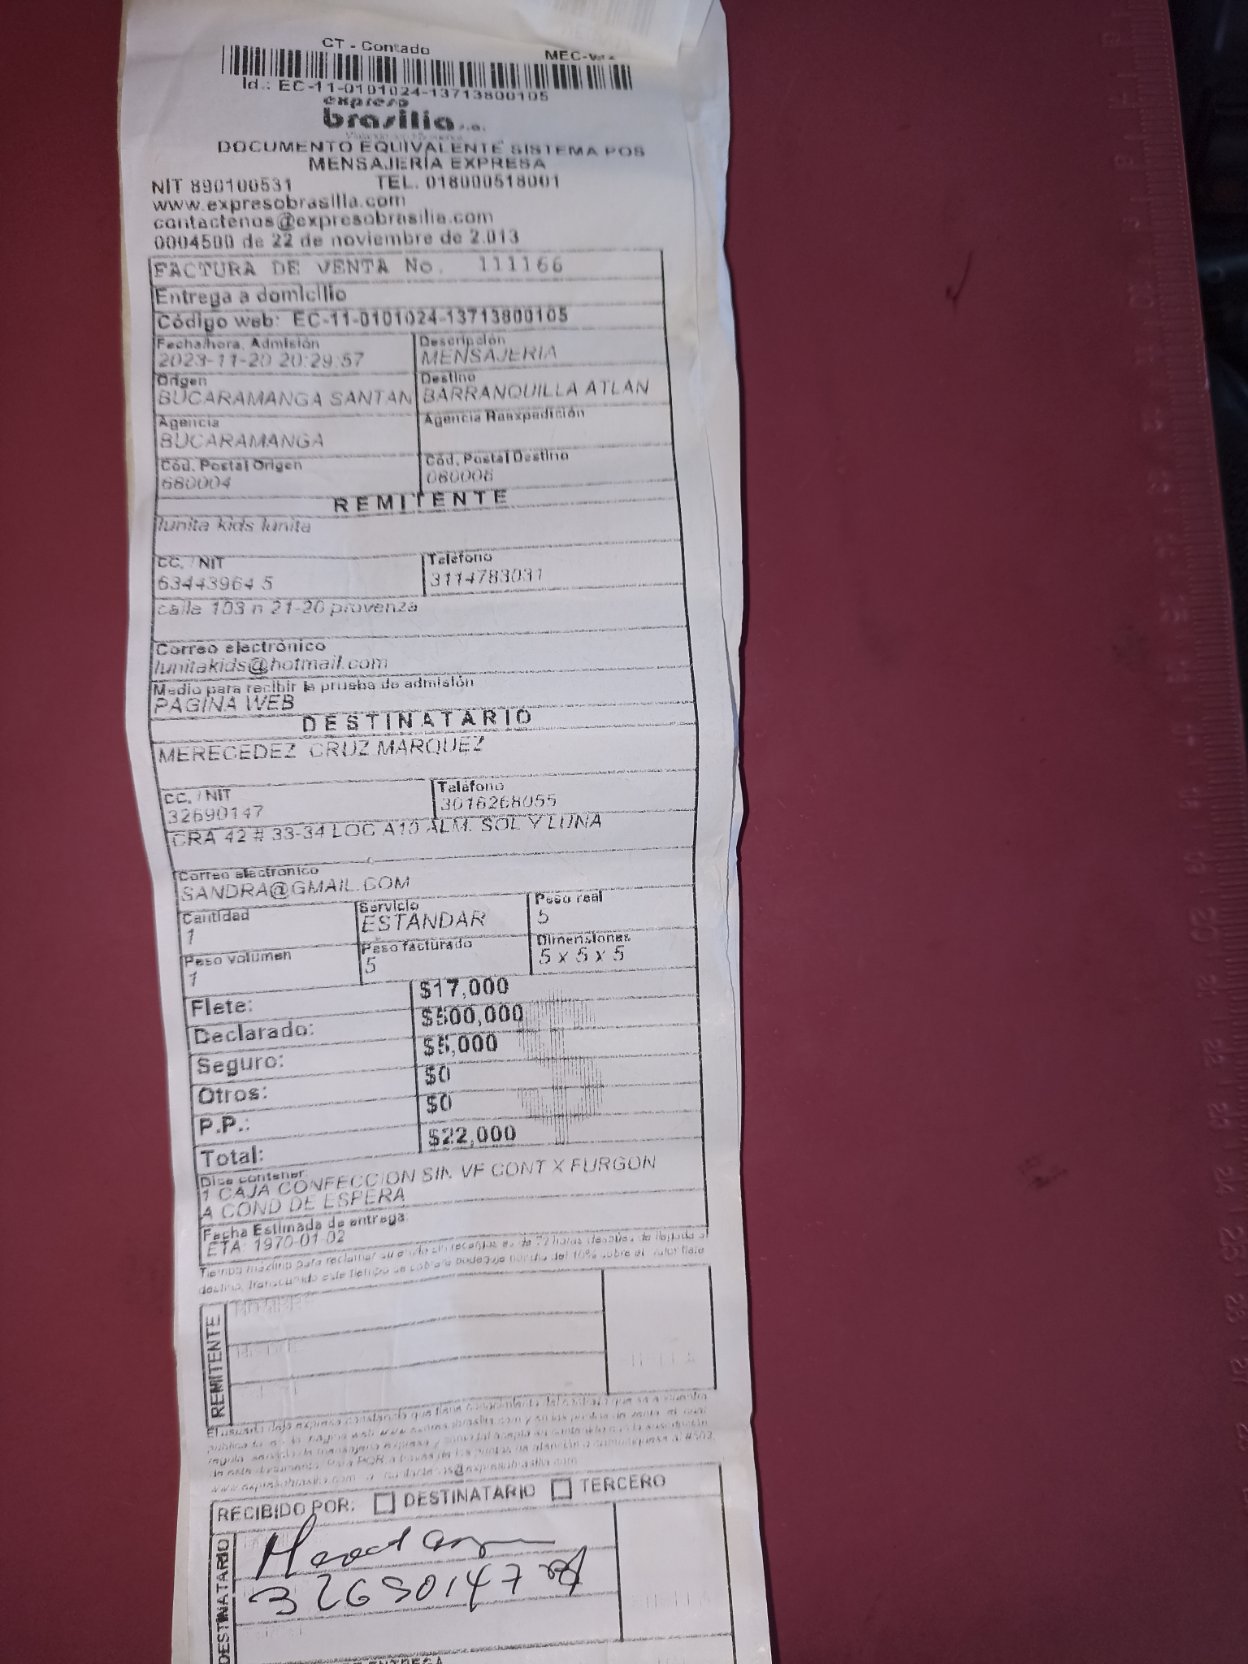 CT - Contado MEC-Ver 2
Id.: EC-11-0101024-13713800105
expreso
brasilia s.a.
DOCUMENTO EQUIVALENTE SISTEMA POS
MENSAJERÍA EXPRESA
NIT 890100531 TEL. 018000518001
www.expresobrasilia.com
contactenos@expresobrasilia.com
0004500 de 22 de noviembre de 2.013
FACTURA DE VENTA No. 111166
Entrega a domicilio
Código web: EC-11-0101024-13713800105
Fecha/hora. Admisión Descripción
2023-11-20 20:29:57 MENSAJERIA
Origen Destino
BUCARAMANGA SANTAN BARRANQUILLA ATLAN
Agencia Agencia Reexpedición
BUCARAMANGA
Cód. Postal Origen Cód. Postal Destino
680004 080006
REMITENTE
lunita kids lunita
CC. / NIT Teléfono
63443964 5 3114783031
calle 103 n 21-20 provenza
Correo electrónico
lunitakids@hotmail.com
Medio para recibir la prueba de admisión
PAGINA WEB
DESTINATARIO
MERECEDEZ CRUZ MARQUEZ
CC. / NIT Teléfono
32690147 3016268055
CRA 42 # 33-34 LOC A10 ALM. SOL Y LUNA
Correo electronico
SANDRA@GMAIL.COM
Cantidad Servicio Peso real
1 ESTANDAR 5
Peso volumen Peso facturado Dimensiones
1 5 5 x 5 x 5
Flete: $17,000
Declarado: $500,000
Seguro: $5,000
Otros: $0
P.P.: $0
Total: $22,000
Dice contener
1 CAJA CONFECCION SIN VF CONT X FURGON
A COND DE ESPERA
Fecha Estimada de entrega
ETA: 1970-01-02
Tiempo maximo para reclamar su envio sin recargos es de 72 horas después de llegada a
destino, transcurrido este tiempo se cobrara bodegaje mínimo del 10% sobre el valor flete
REMITENTE
HUELLA
RECIBIDO POR: DESTINATARIO TERCERO
DESTINATARIO
32690147
HUELLA
DE ENTREGA